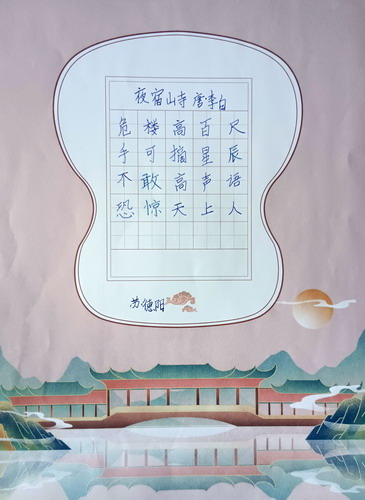 夜宿山寺 唐·李白
危楼高百尺
手可摘星辰
不敢高声语
恐惊天上人
苏德阳